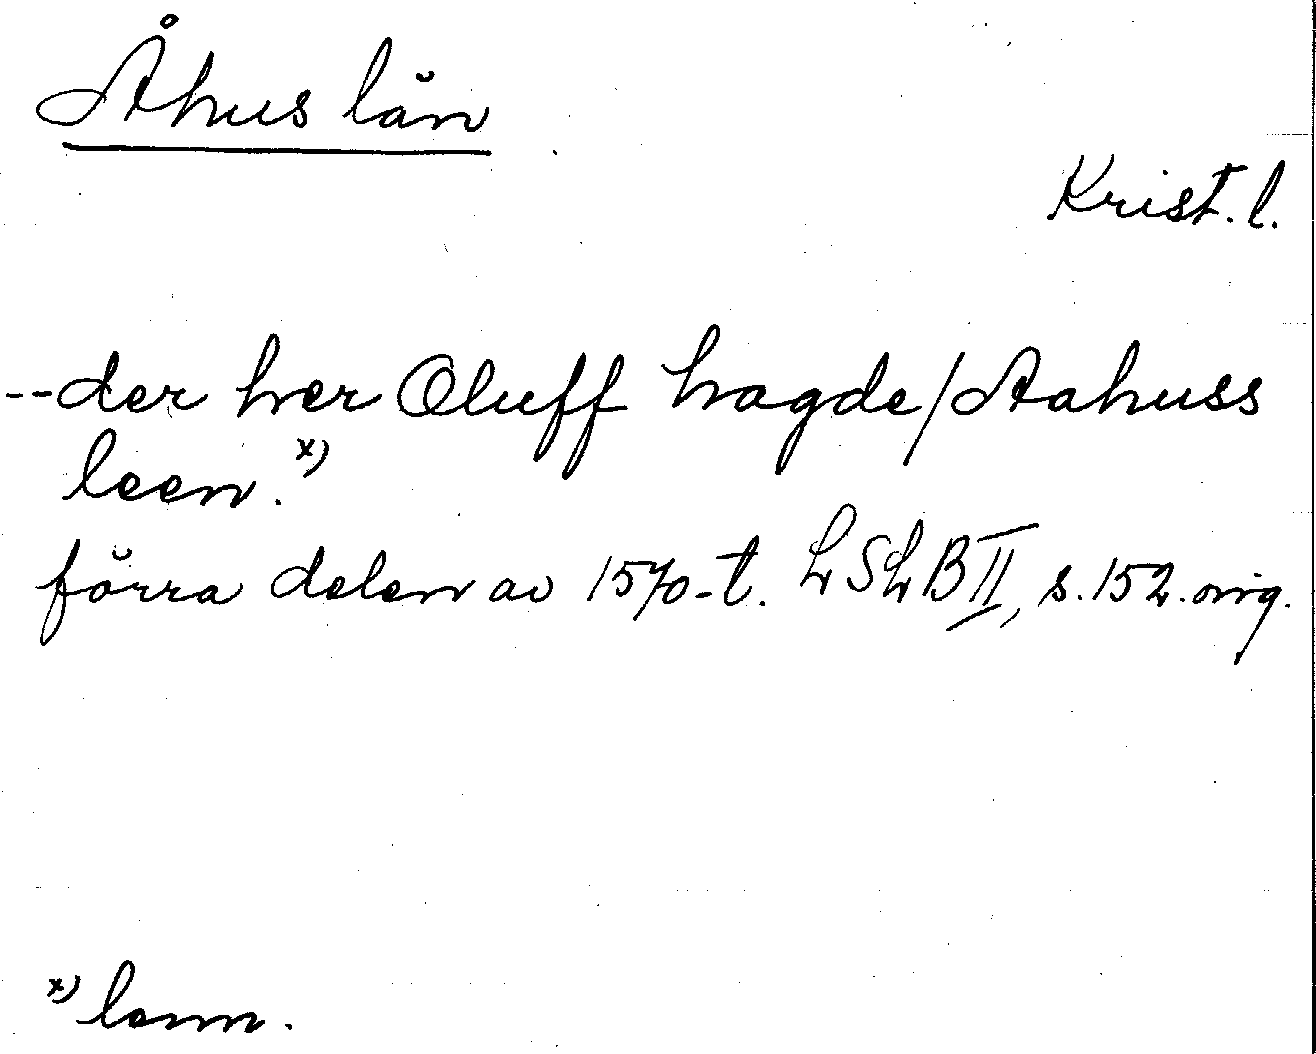 Åhus län
Krist. l.
-- der her Oluff hagde / Aahuss
leen. x)
förra delen av 1570-t. LSLB II, s. 152. orig.
x) lenn.